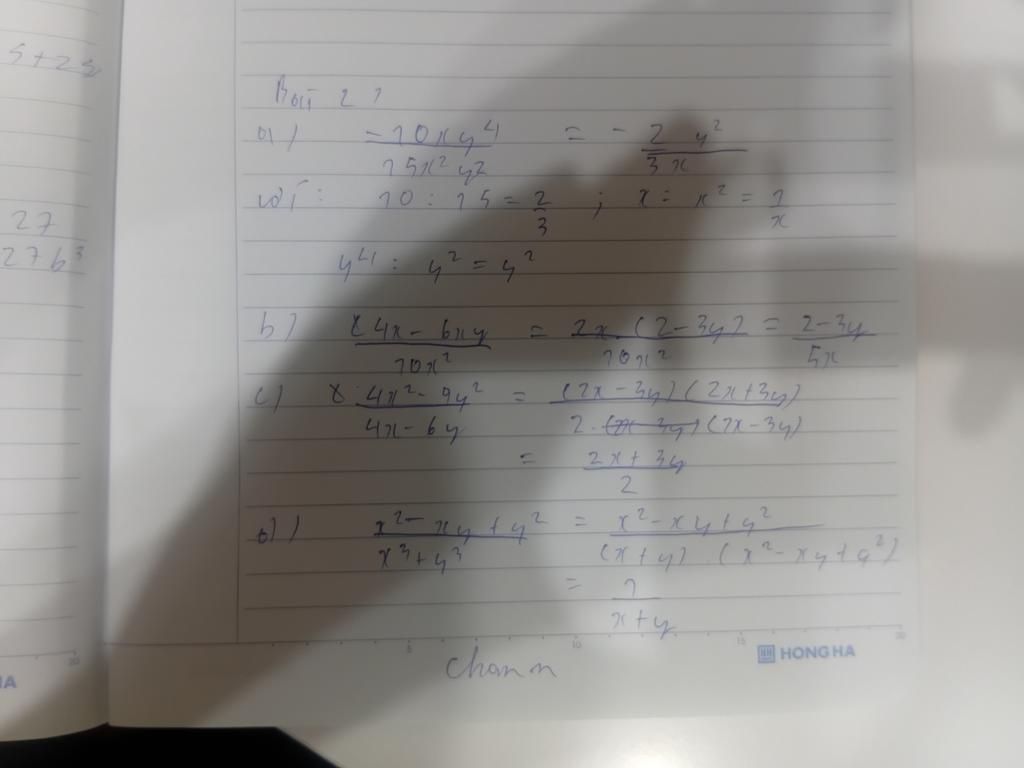 5+25
27
27b³
Bài 2:
a) -10xy⁴ / 15x²y² = - 2y² / 3x
vì: 10 : 15 = 2/3 ; x : x² = 1/x
y⁴ : y² = y²
b) 4x - 6xy / 10x² = 2x.(2-3y) / 10x² = 2-3y / 5x
c) 4x² - 9y² / 4x - 6y = (2x-3y)(2x+3y) / 2.(2x-3y)
= 2x + 3y / 2
d) x² - xy + y² / x³ + y³ = x² - xy + y² / (x+y).(x² - xy + y²)
= 1 / x+y
5 10 15 20
20
HONG HA
HA